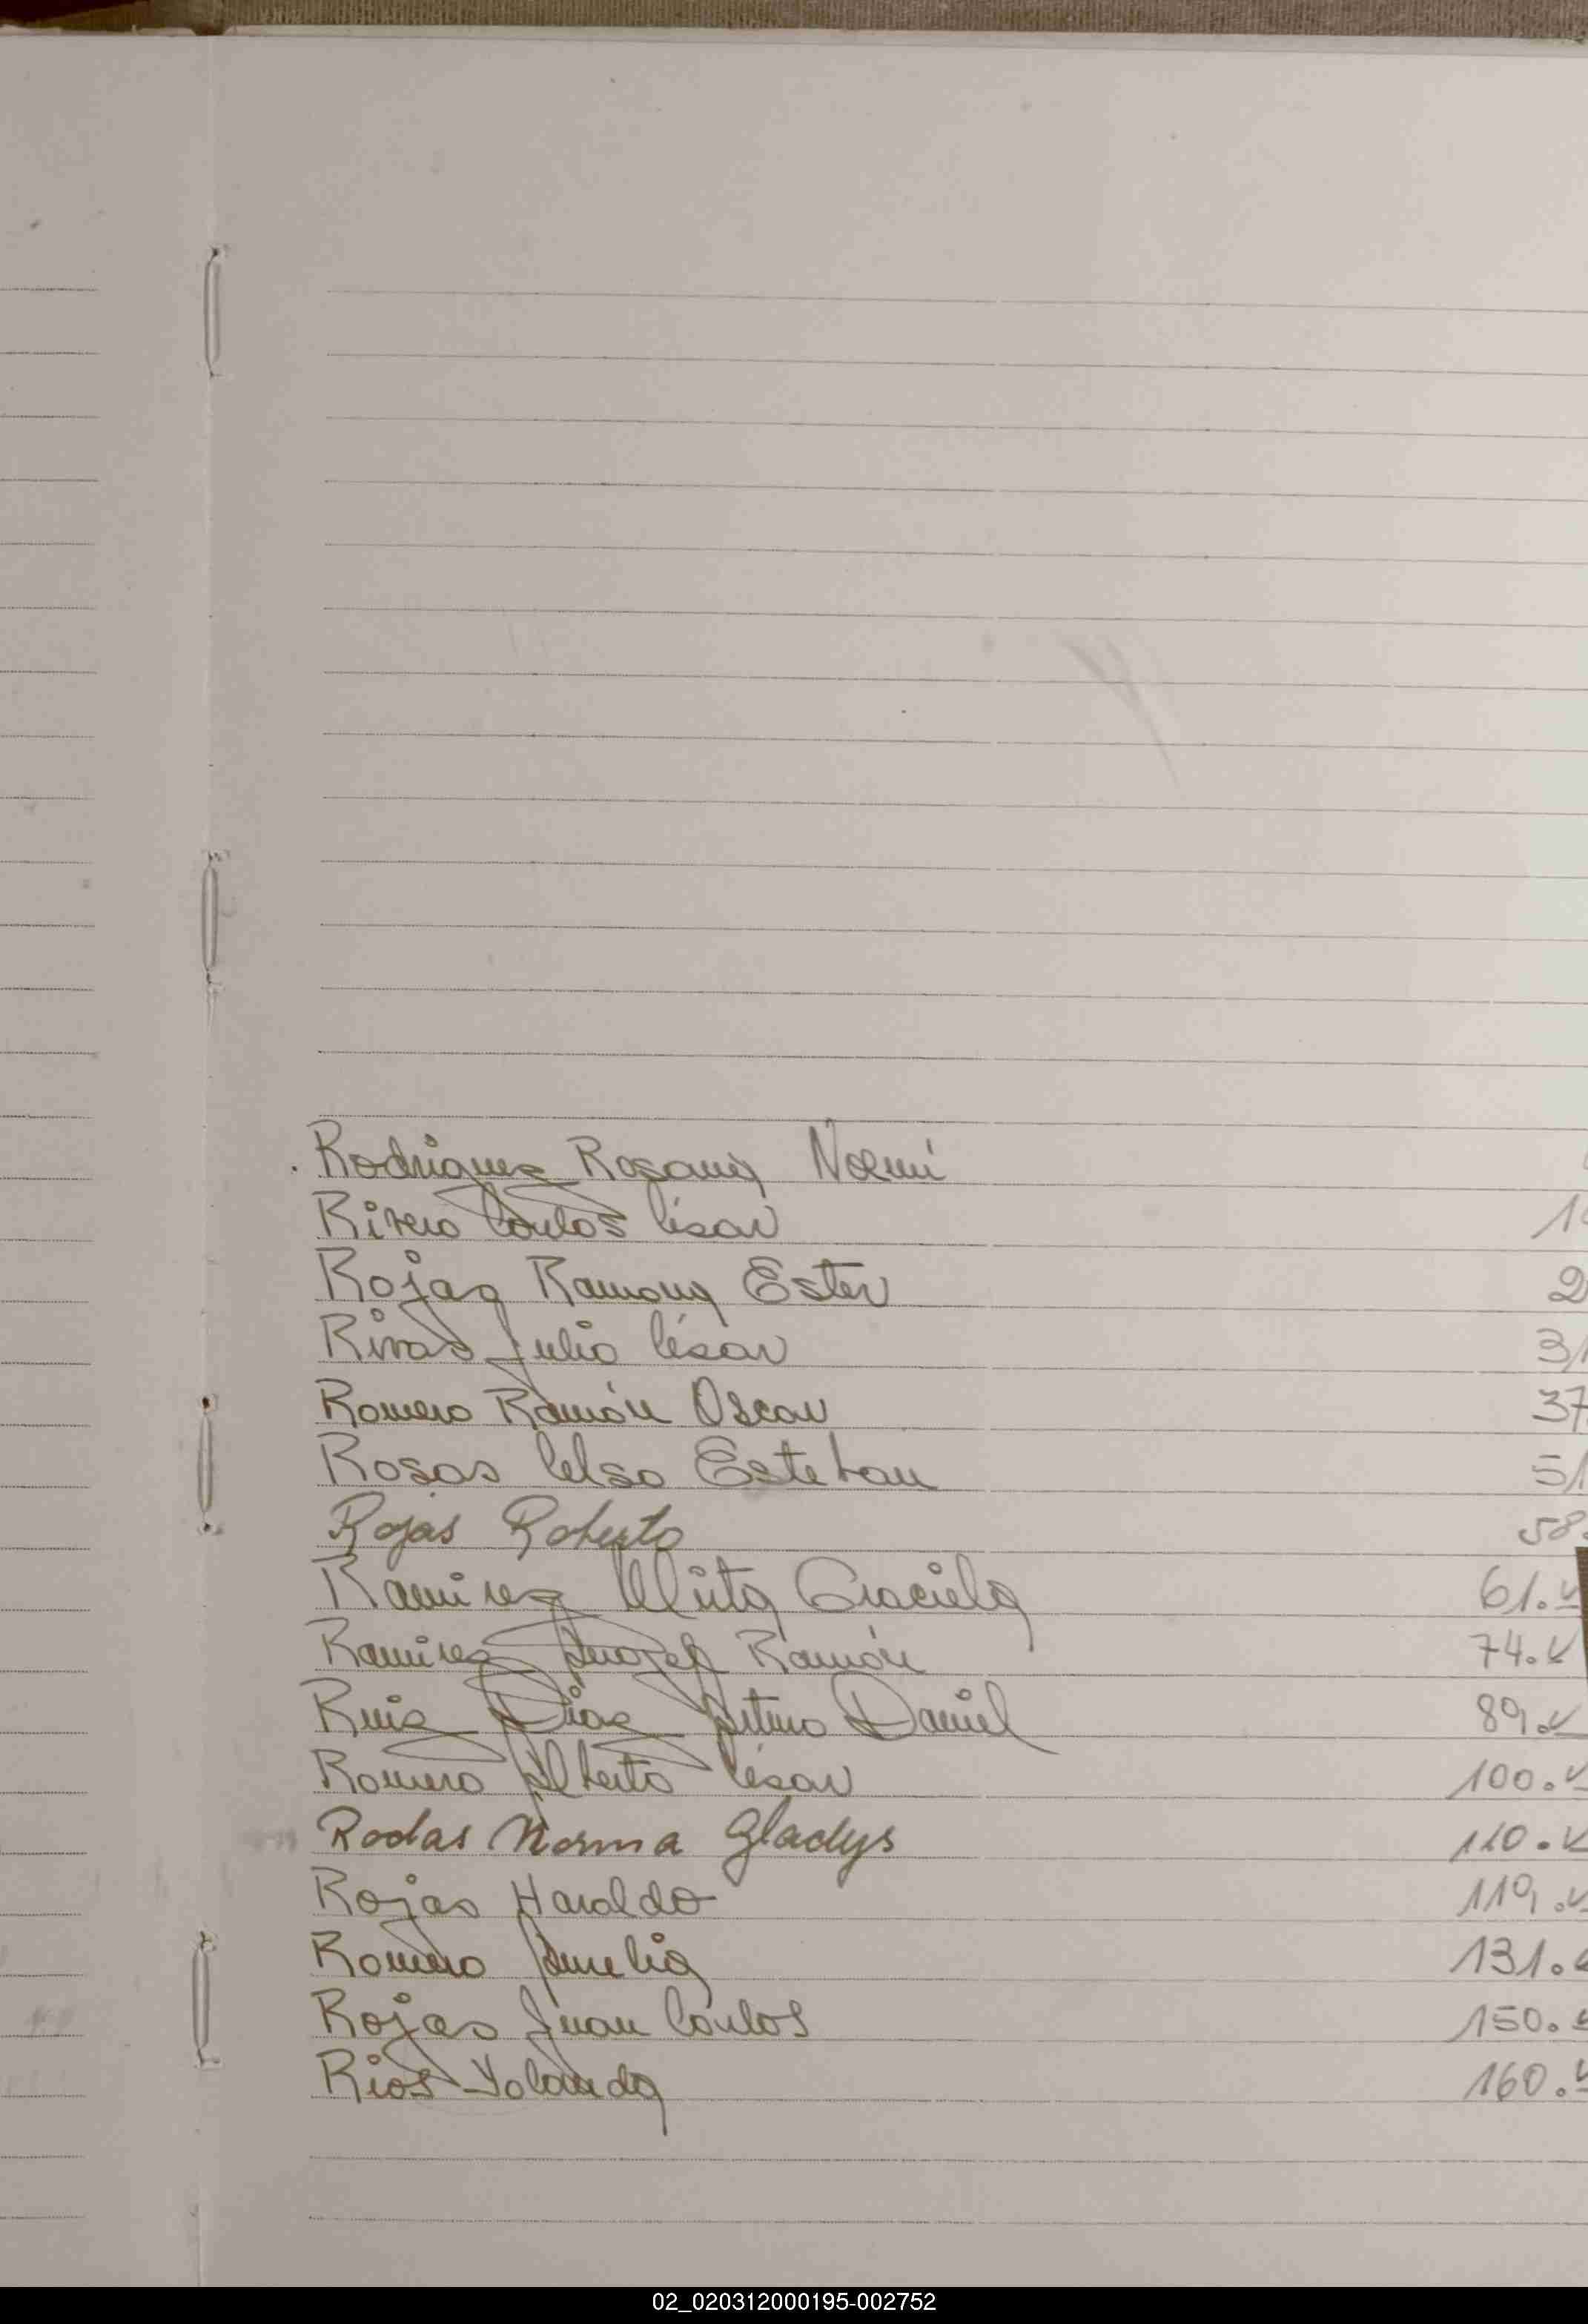 Rodriguez Rosana Noemí
Rivero Carlos César 1
Rojas Ramona Ester 2
Rivas Julio César 31
Romero Ramón Oscar 37
Rosas Celso Esteban 51
Rojas Roberto 58.
Ramirez Graciela 61.
Ramirez Ramón 74.
Ruiz Diaz Arturo Daniel 89.
Romero Alberto César 100.
Rodas Norma Gladys 110.
Rojas Haroldo 119.
Romero Amelia 131.
Rojas Juan Carlos 150.
Rios Yolanda 160.
02_020312000195-002752